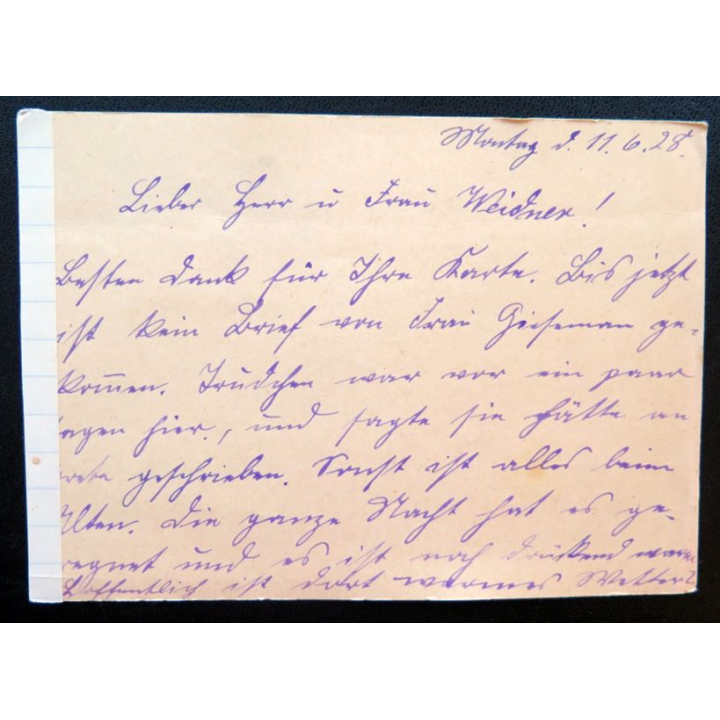 Montag d. 11.6.28.
Lieber Herr u Frau Weidner!
Besten Dank für Ihre Karte. Bis jetzt
ist kein Brief von Frau Gieseman ge-
kommen. Trudchen war vor ein paar
agen hier, und sagte sie hätte an
geschrieben. Sonst ist alles beim
Alten. Die ganze Nacht hat es ge-
regnet und es ist noch drückend warm
Hoffentlich ist dort warmes Wetter?